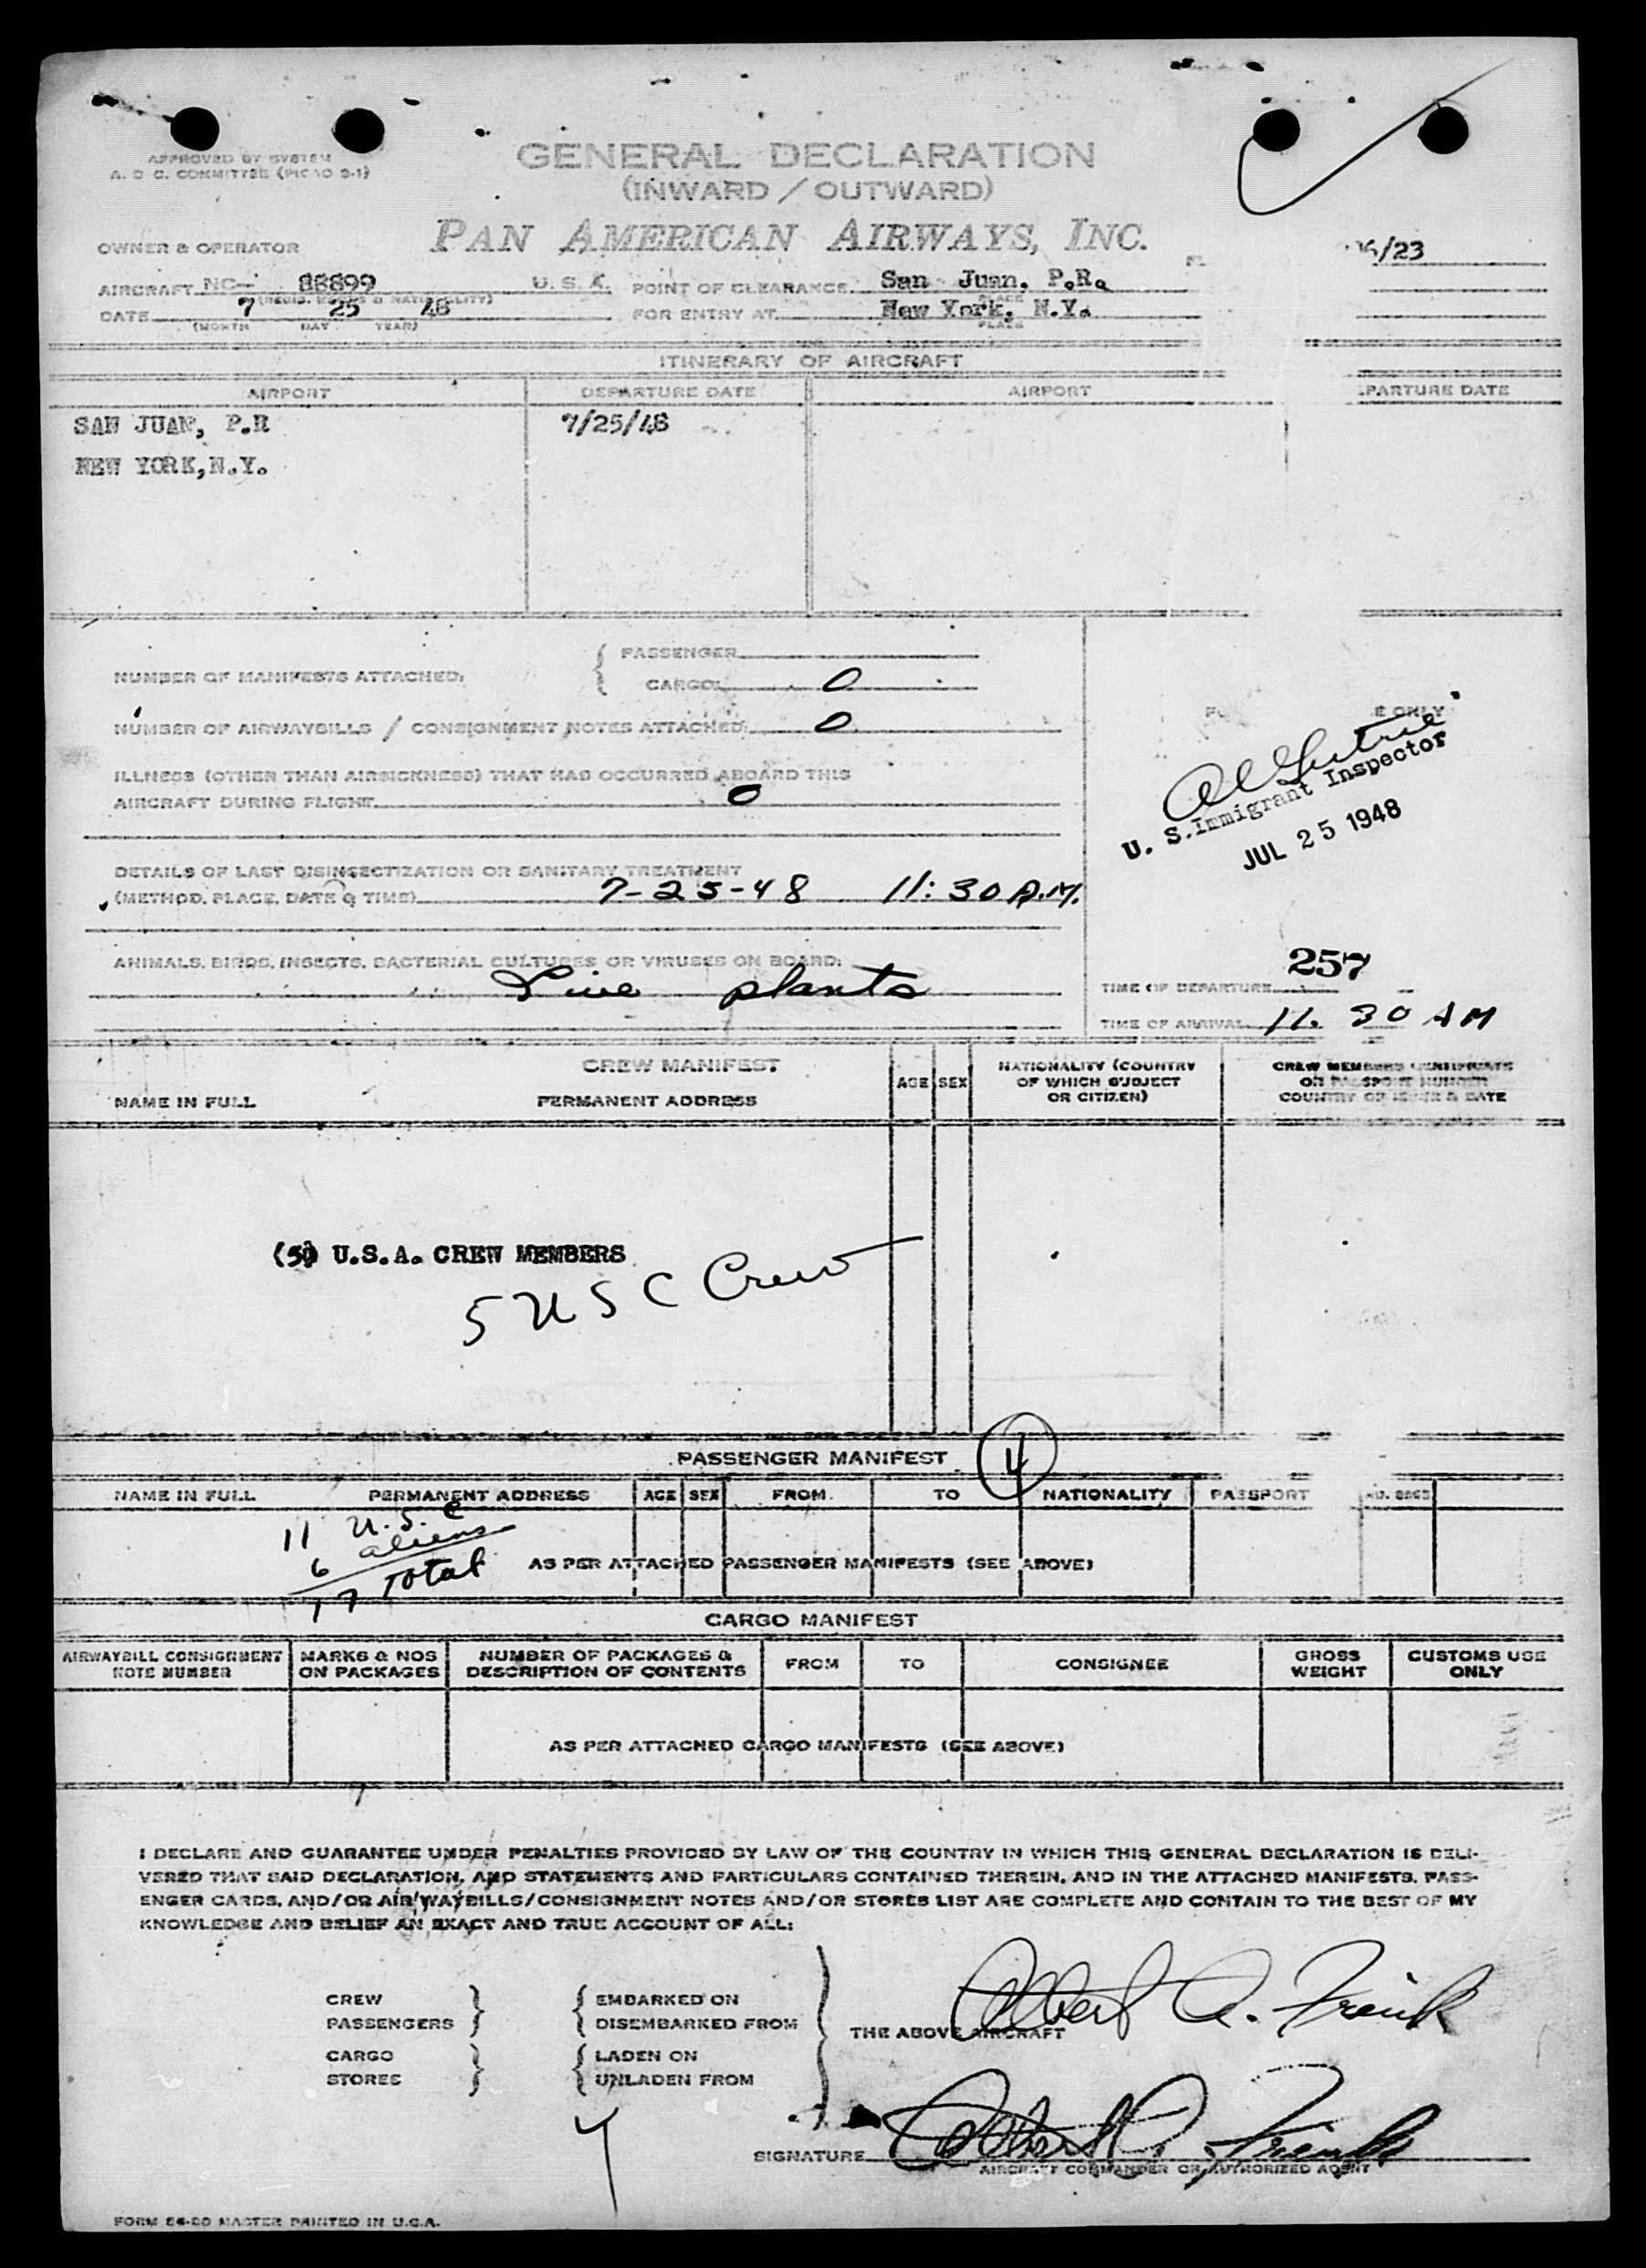 APPROVED BY SYSTEM
A. O C. COMMITTEE (PICAO S-1)
GENERAL DECLARATION
(INWARD / OUTWARD)
PAN AMERICAN AIRWAYS, INC.
OWNER & OPERATOR
6/23
AIRCRAFT NC- 88899 U. S. A. POINT OF CLEARANCE San Juan, P.R.
(REGIS. MARKS & NATIONALITY) PLACE
DATE 7 25 48 FOR ENTRY AT New York, N.Y.
(MONTH DAY YEAR) PLACE
ITINERARY OF AIRCRAFT
AIRPORT DEPARTURE DATE AIRPORT PARTURE DATE
SAN JUAN, P.R 7/25/48
NEW YORK, N.Y.
NUMBER OF MANIFESTS ATTACHED: { PASSENGER
CARGO 0
NUMBER OF AIRWAYBILLS / CONSIGNMENT NOTES ATTACHED: 0
ILLNESS (OTHER THAN AIRSICKNESS) THAT HAS OCCURRED ABOARD THIS
AIRCRAFT DURING FLIGHT 0
E ONLY
U. S. Immigrant Inspector
JUL 25 1948
DETAILS OF LAST DISINSECTIZATION OR SANITARY TREATMENT
(METHOD, PLACE, DATE & TIME) 7-25-48 11:30 A.M.
ANIMALS, BIRDS, INSECTS, BACTERIAL CULTURES OR VIRUSES ON BOARD:
Live plants
257
TIME OF DEPARTURE
TIME OF ARRIVAL 11.30 AM
CREW MANIFEST
NAME IN FULL PERMANENT ADDRESS AGE SEX NATIONALITY (COUNTRY
OF WHICH SUBJECT
OR CITIZEN)
CREW MEMBERS CERTIFICATE
OR PASSPORT NUMBER
COUNTRY OF ISSUE & DATE
(5) U.S.A. CREW MEMBERS
5 U S C Crew
PASSENGER MANIFEST 4
NAME IN FULL PERMANENT ADDRESS AGE SEX FROM TO NATIONALITY PASSPORT
11 U.S.C
6 aliens
17 Total
AS PER ATTACHED PASSENGER MANIFESTS (SEE ABOVE)
CARGO MANIFEST
AIRWAYBILL CONSIGNMENT
NOTE NUMBER
MARKS & NOS
ON PACKAGES
NUMBER OF PACKAGES &
DESCRIPTION OF CONTENTS
FROM TO CONSIGNEE
GROSS
WEIGHT
CUSTOMS USE
ONLY
AS PER ATTACHED CARGO MANIFESTS (SEE ABOVE)
I DECLARE AND GUARANTEE UNDER PENALTIES PROVIDED BY LAW OF THE COUNTRY IN WHICH THIS GENERAL DECLARATION IS DELI-
VERED THAT SAID DECLARATION, AND STATEMENTS AND PARTICULARS CONTAINED THEREIN, AND IN THE ATTACHED MANIFESTS, PASS-
ENGER CARDS, AND/OR AIR/WAYBILLS/CONSIGNMENT NOTES AND/OR STORES LIST ARE COMPLETE AND CONTAIN TO THE BEST OF MY
KNOWLEDGE AND BELIEF AN EXACT AND TRUE ACCOUNT OF ALL:
CREW
PASSENGERS
EMBARKED ON
DISEMBARKED FROM
CARGO
STORES
LADEN ON
UNLADEN FROM
THE ABOVE AIRCRAFT
Albert A.
SIGNATURE
AIRCRAFT COMMANDER OR AUTHORIZED AGENT
FORM 84-20 MASTER PRINTED IN U.S.A.